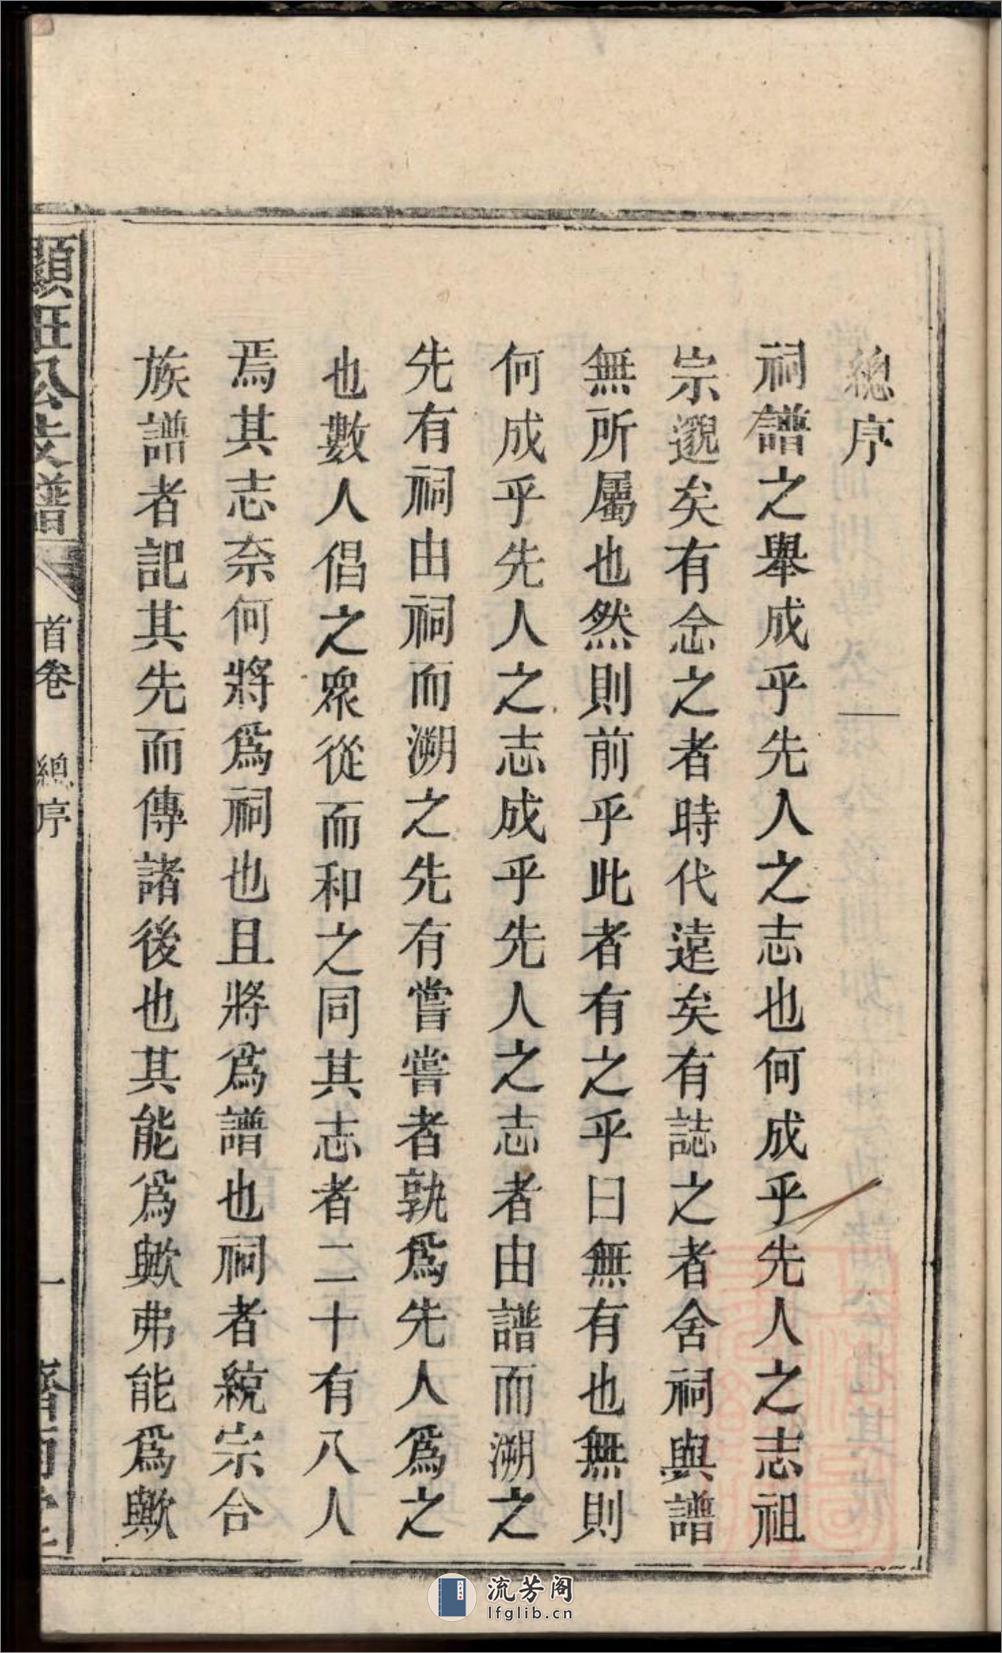 總序
祠譜之舉成乎先人之志也何成乎先人之志祖
宗邈矣有念之者時代遠矣有誌之者舍祠與譜
無所屬也然則前乎此者有之乎曰無有也無則
何成乎先人之志成乎先人之志者由譜而溯之
先有祠由祠而溯之先有嘗嘗者孰爲先人爲之
也數人倡之眾從而和之同其志者二十有八人
焉其志奈何將爲祠也且將爲譜也祠者統宗合
族譜者記其先而傳諸後也其能爲歟弗能爲歟
公支譜
首卷
總序
一
流芳阁
lfglib.cn